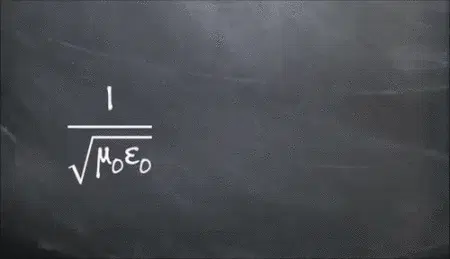 1
√μ₀ε₀